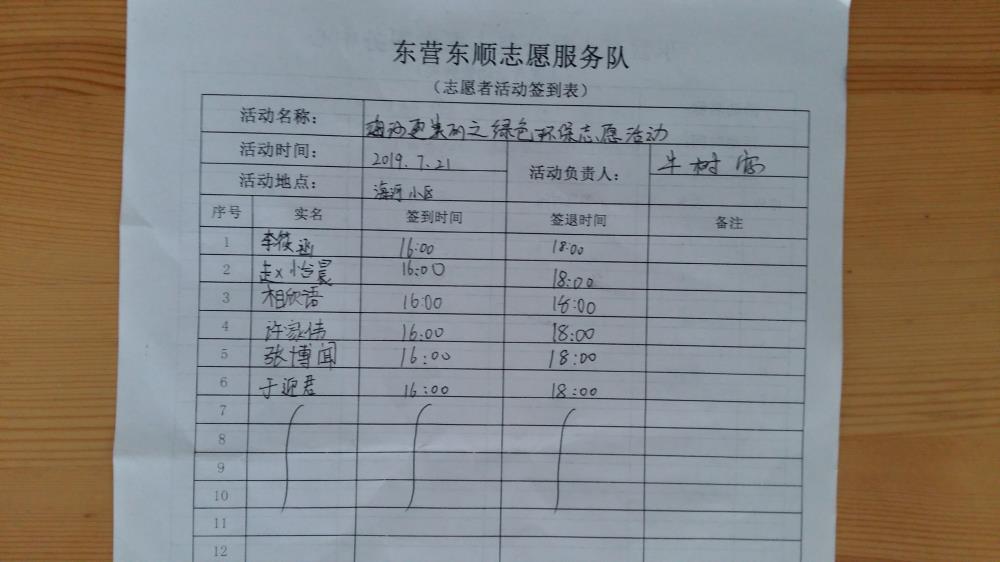 东营东顺志愿服务队
（志愿者活动签到表）
活动名称： 之绿色环保志愿活动
活动时间： 2019.7.21 活动负责人： 牛树
活动地点： 滨河小区
序号 实名 签到时间 签退时间 备注
1 李筱涵 16:00 18:00
2 赵怡晨 16:00 18:00
3 相欣语 16:00 18:00
4 许家伟 16:00 18:00
5 张博闻 16:00 18:00
6 于迎君 16:00 18:00
7
8
9
10
11
12